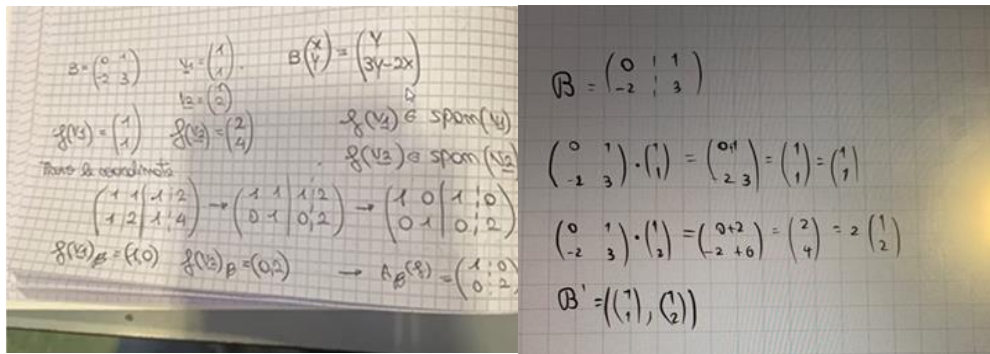 B = (0 1 / -2 3) v1 = (1 / 1). B(x / y) = (y / 3y-2x)
v2 = (1 / 2)
f(v1) = (1 / 1) f(v2) = (2 / 4) f(v1) ∈ span(v1)
f(v2) ∈ span(v2)
Trovo le coordinate
(1 1 | 1 ¦ 2 / 1 2 | 1 ¦ 4) → (1 1 | 1 ¦ 2 / 0 1 | 0 ¦ 2) → (1 0 | 1 ¦ 0 / 0 1 | 0 ¦ 2)
f(v1)B = (1,0) f(v2)B = (0,2) → AB(f) = (1 ¦ 0 / 0 ¦ 2)
B = (0 ¦ 1 / -2 ¦ 3)
(0 1 / -2 3) · (1 / 1) = (0+1 / -2 3) = (1 / 1) = (1 / 1)
(0 1 / -2 3) · (1 / 2) = (0+2 / -2 +6) = (2 / 4) = 2 (1 / 2)
B' = ((1 / 1), (1 / 2))